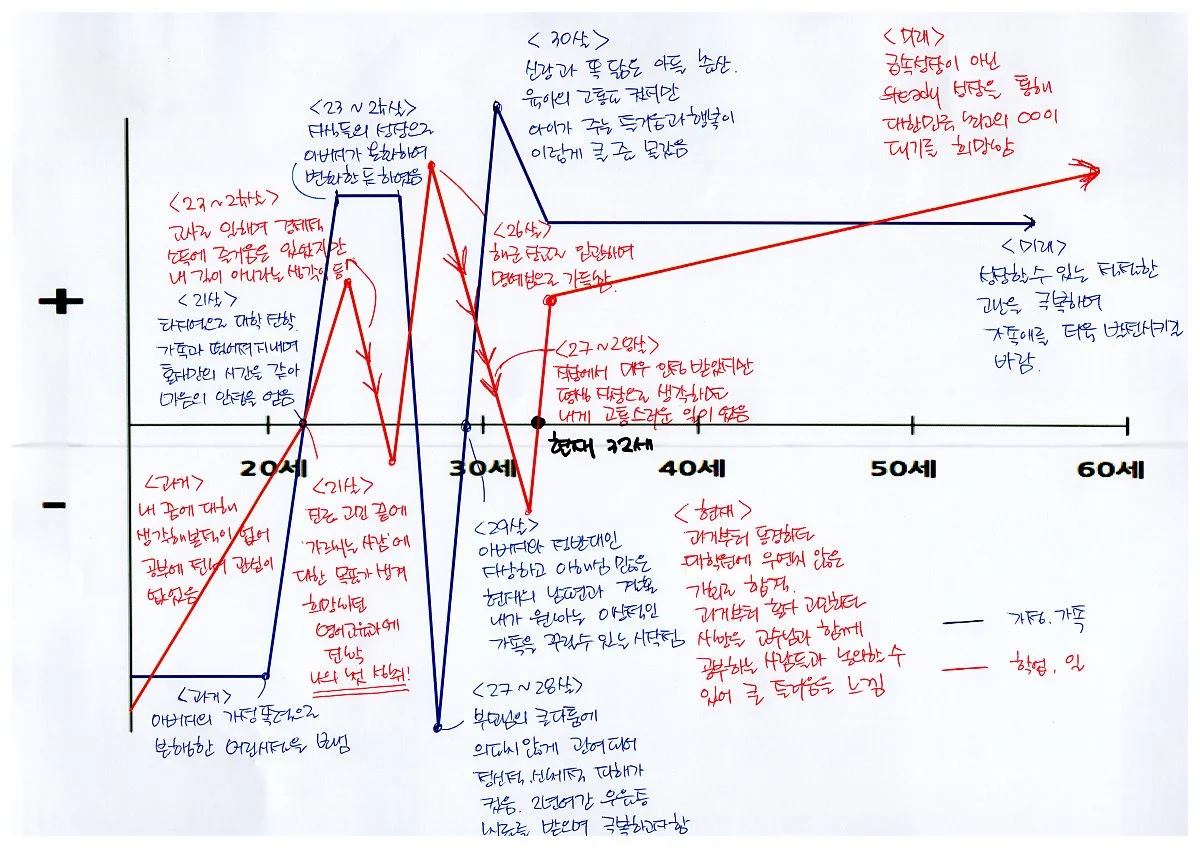 <30살>
신랑과 똑 닮은 아들 출산.
육아의 고통도 컸지만
아이가 주는 즐거움과 행복이
이렇게 클 준 몰랐음
<미래>
급속성장이 아닌
steady 성장을 통해
대한민국 최고의 OO이
되기를 희망함
<23~26살>
자식들의 성장으로
아버지가 온화하여
변화한 듯 하였음
<23~26살>
교사로 일하며 경제적
소득에 즐거움은 있었지만
내 길이 아니라는 생각이 듦
<26살>
해군 장교로 입관하여
명예심으로 가득찬.
<미래>
성장할 수 있는 적절한
고난을 극복하며
가족애를 더욱 발전시키길
바람.
+
<21살>
타지역으로 대학 진학.
가족과 떨어져 지내며
혼자만의 시간을 갖아
마음의 안정을 얻음
<27~28살>
직장에서 매우 인정 받았지만
평생 직장으로 생각하는
내게 고통스러운 일이 많음
현재 32세
20세
30세
40세
50세
60세
-
<과거>
내 꿈에 대해
생각해본적이 없어
공부에 전혀 관심이
없었음
<21살>
진로 고민 끝에
'가르치는 사람'에
대한 목표가 생겨
희망하던
영어교육과에
진학
나의 첫 성취!
<29살>
아버지와 정반대인
자상하고 이해심 많은
현재의 남편과 결혼
내가 원하는 이상적인
가족을 꾸릴 수 있는 시작점
<현재>
과거부터 동경하던
대학원에 우연치 않은
기회로 합격.
과거부터 항상 고민하던
사항을 교수님과 함께
공부하는 사람들과 논의할 수
있어 큰 즐거움을 느낌
가정. 가족
학업. 일
<과거>
아버지의 가정폭력으로
불행한 어린시절을 보냄
<27~28살>
부모님의 큰다툼에
의도치않게 관여되어
정신적.신체적 피해가
컸음. 2년여간 우울증
치료를 받으며 극복하고자함